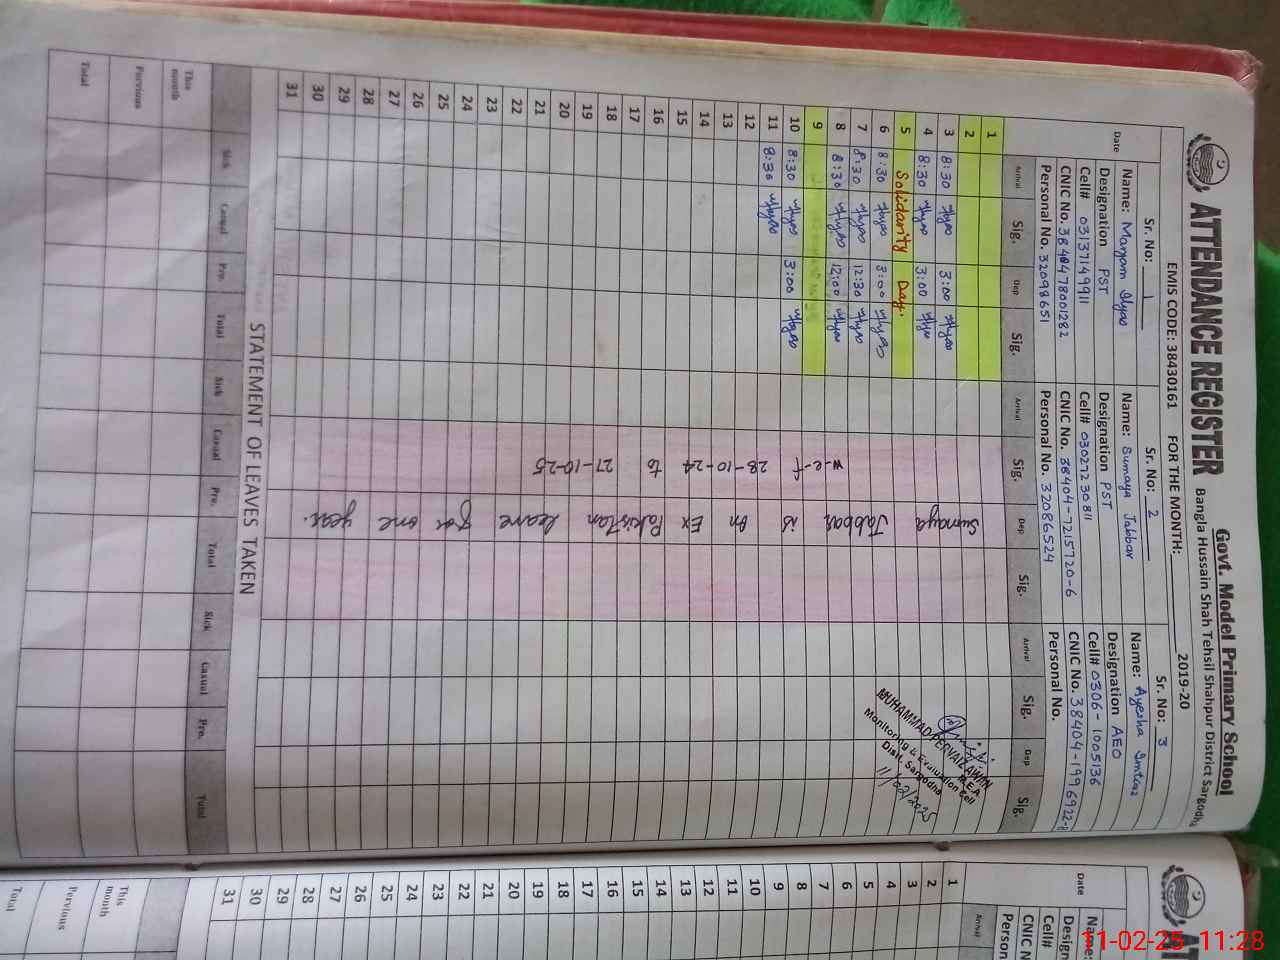 ATTENDANCE REGISTER
Govt. Model Primary School
Bangla Hussain Shah Tehsil Shahpur District Sargodha
EMIS CODE: 38430161 FOR THE MONTH: 2019-20
Sr. No: 1
Name: Maryam Ilyas
Designation PST
Cell# 03137149911
CNIC No. 3840478001282
Personal No. 32098651
Sr. No: 2
Name: Sumaya Jabbar
Designation PST
Cell# 03027230811
CNIC No. 38404-7215720-6
Personal No. 32086524
Sr. No: 3
Name: Ayesha Imtiaz
Designation AEO
Cell# 0306-1005136
CNIC No. 38404-1996922-8
Personal No.
Date Arrival Sig. Dep Sig. Arrival Sig. Dep Sig. Arrival Sig. Dep Sig.
1
2
3 8:30 Ilyas 3:00 Ilyas
4 8:30 Ilyas 3:00 Ilyas
5 Solidarity Day.
6 8:30 Ilyas 3:00 Ilyas
7 8:30 Ilyas 12:30 Ilyas
8 8:30 Ilyas 12:00 Ilyas
9
10 8:30 Ilyas 3:00 Ilyas
11 8:30 Ilyas
12
13
14
15
16
17
18
19
20
21
22
23
24
25
26
27
28
29
30
31
Sumaya Jabbar is on Ex Pakistan leave for one year.
w-e-f 28-10-24 to 27-10-25
MUHAMMAD PERVAIZ AWAN
M.E.A
Monitoring & Evaluation Cell
Distt. Sargodha
11/02/2025
STATEMENT OF LEAVES TAKEN
Sick Casual Pre. Total Sick Casual Pre. Total Sick Casual Pre. Total
This month
Pervious
Total
Date
Name:
Design
Cell#
CNIC No
Person
Arrival
1
2
3
4
5
6
7
8
9
10
11
12
13
14
15
16
17
18
19
20
21
22
23
24
25
26
27
28
29
30
31
This month
Pervious
Total
11-02-25 11:28